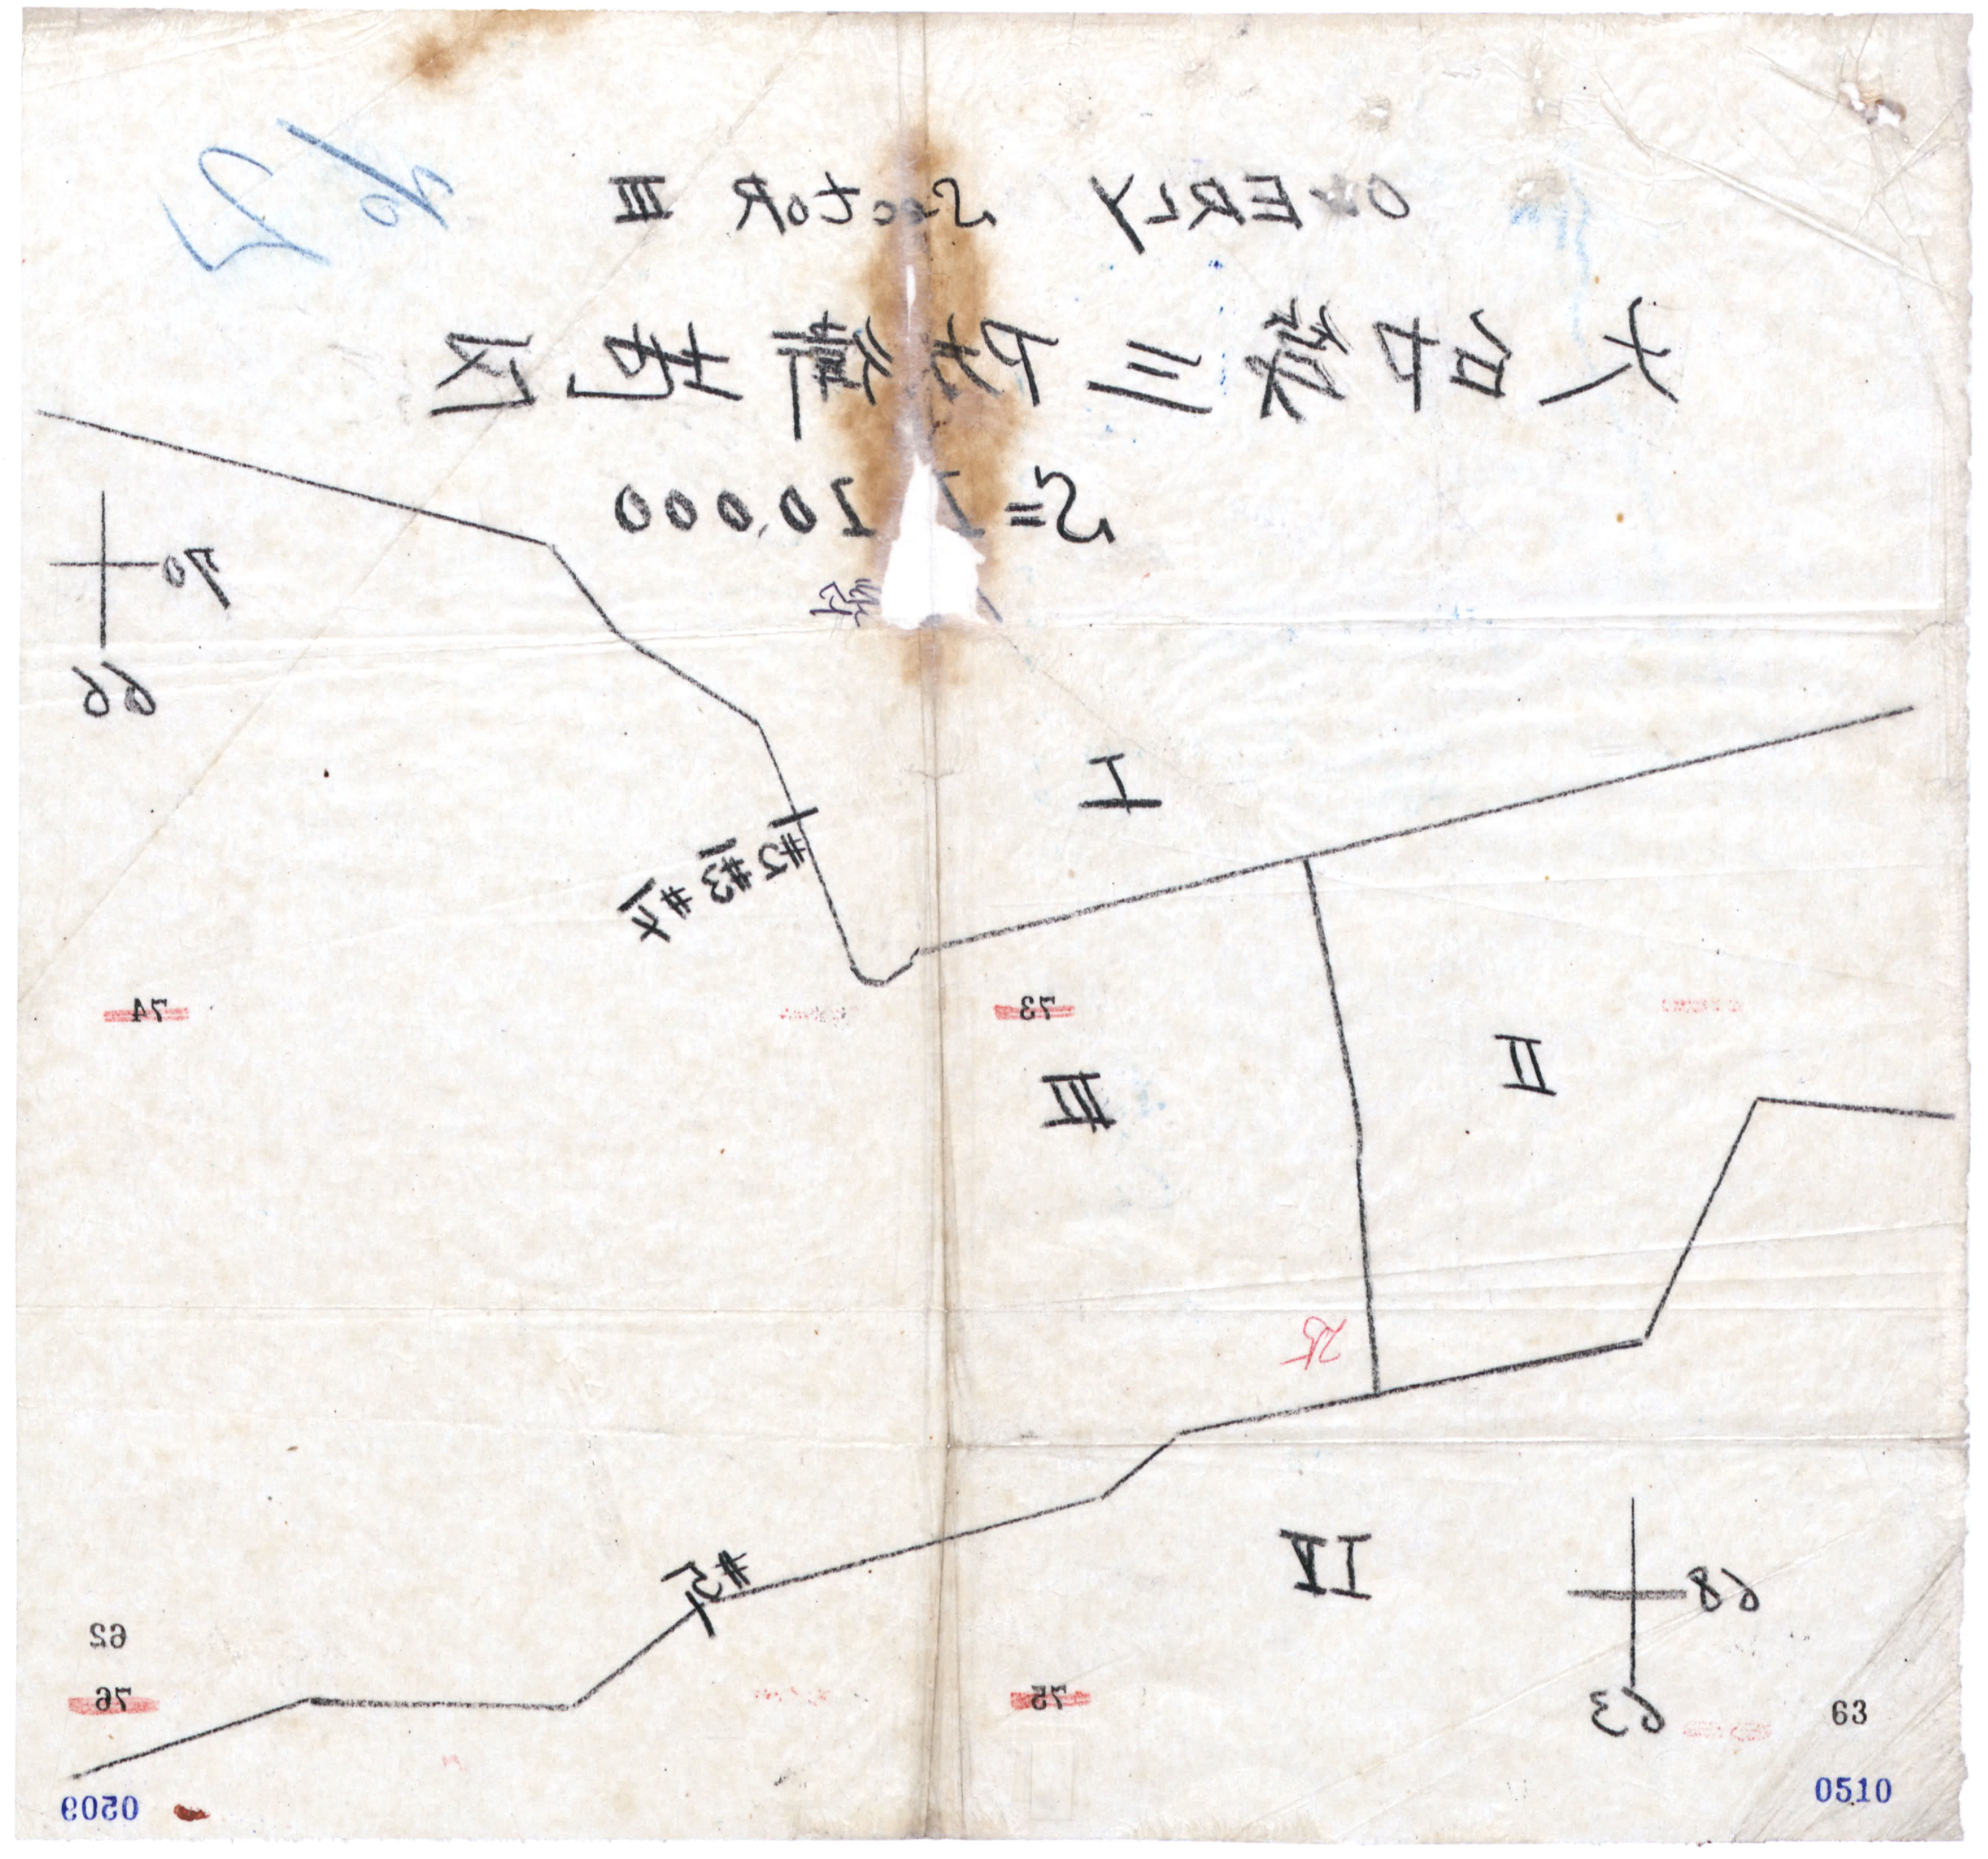 No 27
OVERLY SectoR III
大台中第三防衛地区
S=1 20.000
70
66
I
#2 #3 #4
74
73
II
III
25
IV
#5
68
63
62
76
75
63
0509
0510